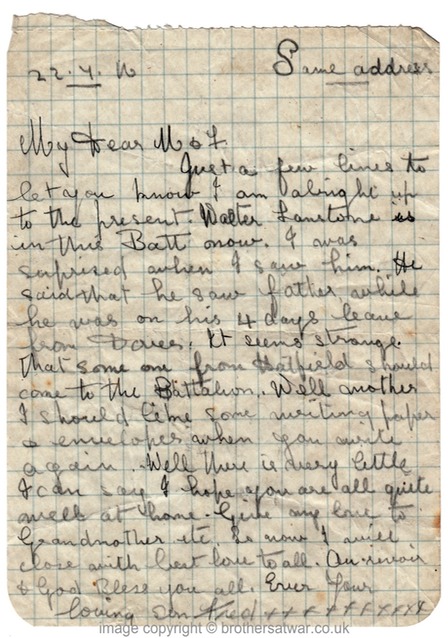 22.4.16 Same address
My Dear M & F
Just a few lines to
let you know I am alright up
to the present. Walter Lanstone is
in this Batt now. I was
surprised when I saw him. He
said that he saw father while
he was on his 4 days leave
from Dover. It seems strange
that some one from Hatfield should
come to the Battalion. Well mother
I should like some writing paper
& envelopes when you write
again. Well there is very little
I can say I hope you are all quite
well at home. Give my love to
Grandmother etc. So now I will
close with best love to all. Au-revoir
& God Bless you all. Ever Your
loving son Fred x x x x x x x x x
image copyright © brothersatwar.co.uk